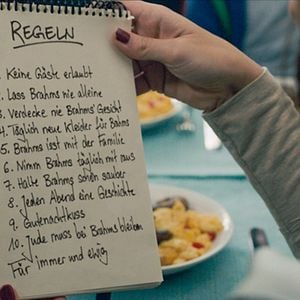 REGELN
1. Keine Gäste erlaubt
2. Lass Brahms nie alleine
3. Verdecke nie Brahms' Gesicht
4. Täglich neue Kleider für Bahms
5. Brahms isst mit der Familie
6. Nimm Brahms täglich mit raus
7. Halte Brahms schön sauber
8. Jeden Abend eine Geschichte
9. Gutenachtkuss
10. Jude muss bei Brahms bleiben
Für immer und ewig